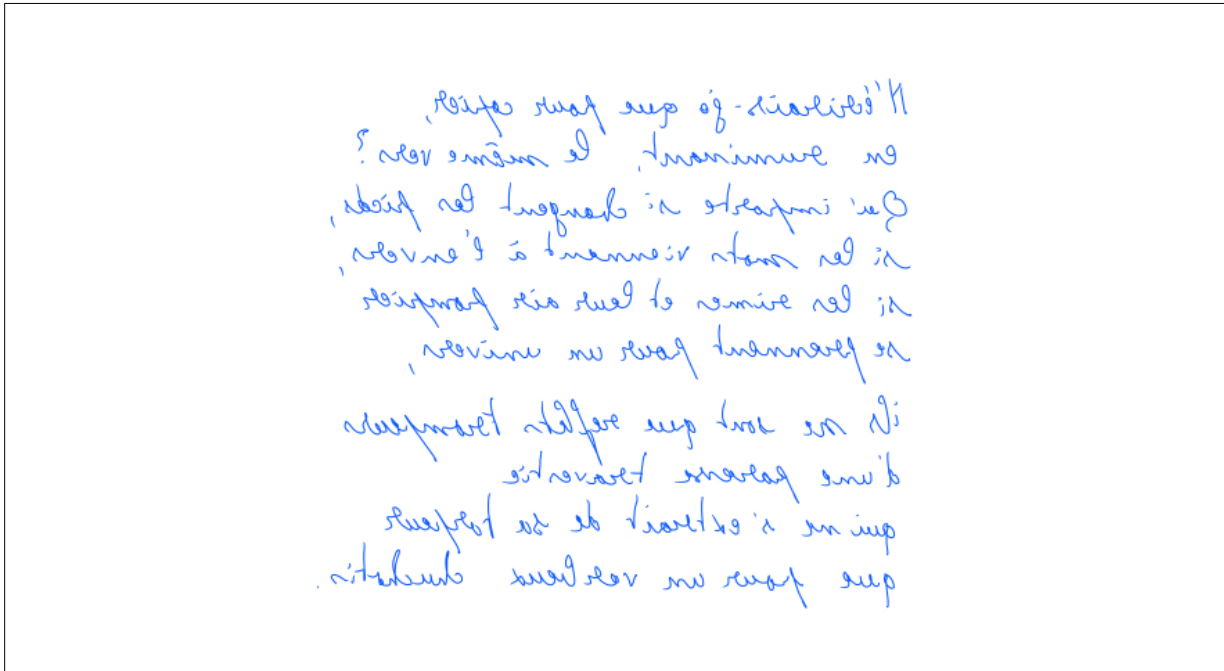 N'écrirais-je que pour copier,
en ruminant, le même vers ?
Qu'importe si changent les pieds,
si les mots viennent à l'envers,
si les rimes et leur air pompier
se prennent pour un univers,
ils ne sont que reflets trompeurs
d'une paresse travestie
qui ne s'extrait de sa torpeur
que pour un verbeux chuchotis.